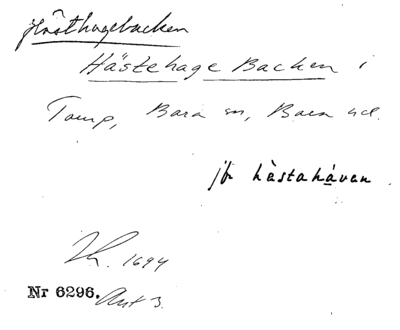 Hästhagebacken
Hästehage Backen i
Torup, Bara sn, Bara hd.
jfr hästahávan
Lh. 1694
Nr 6296. Akt 3.